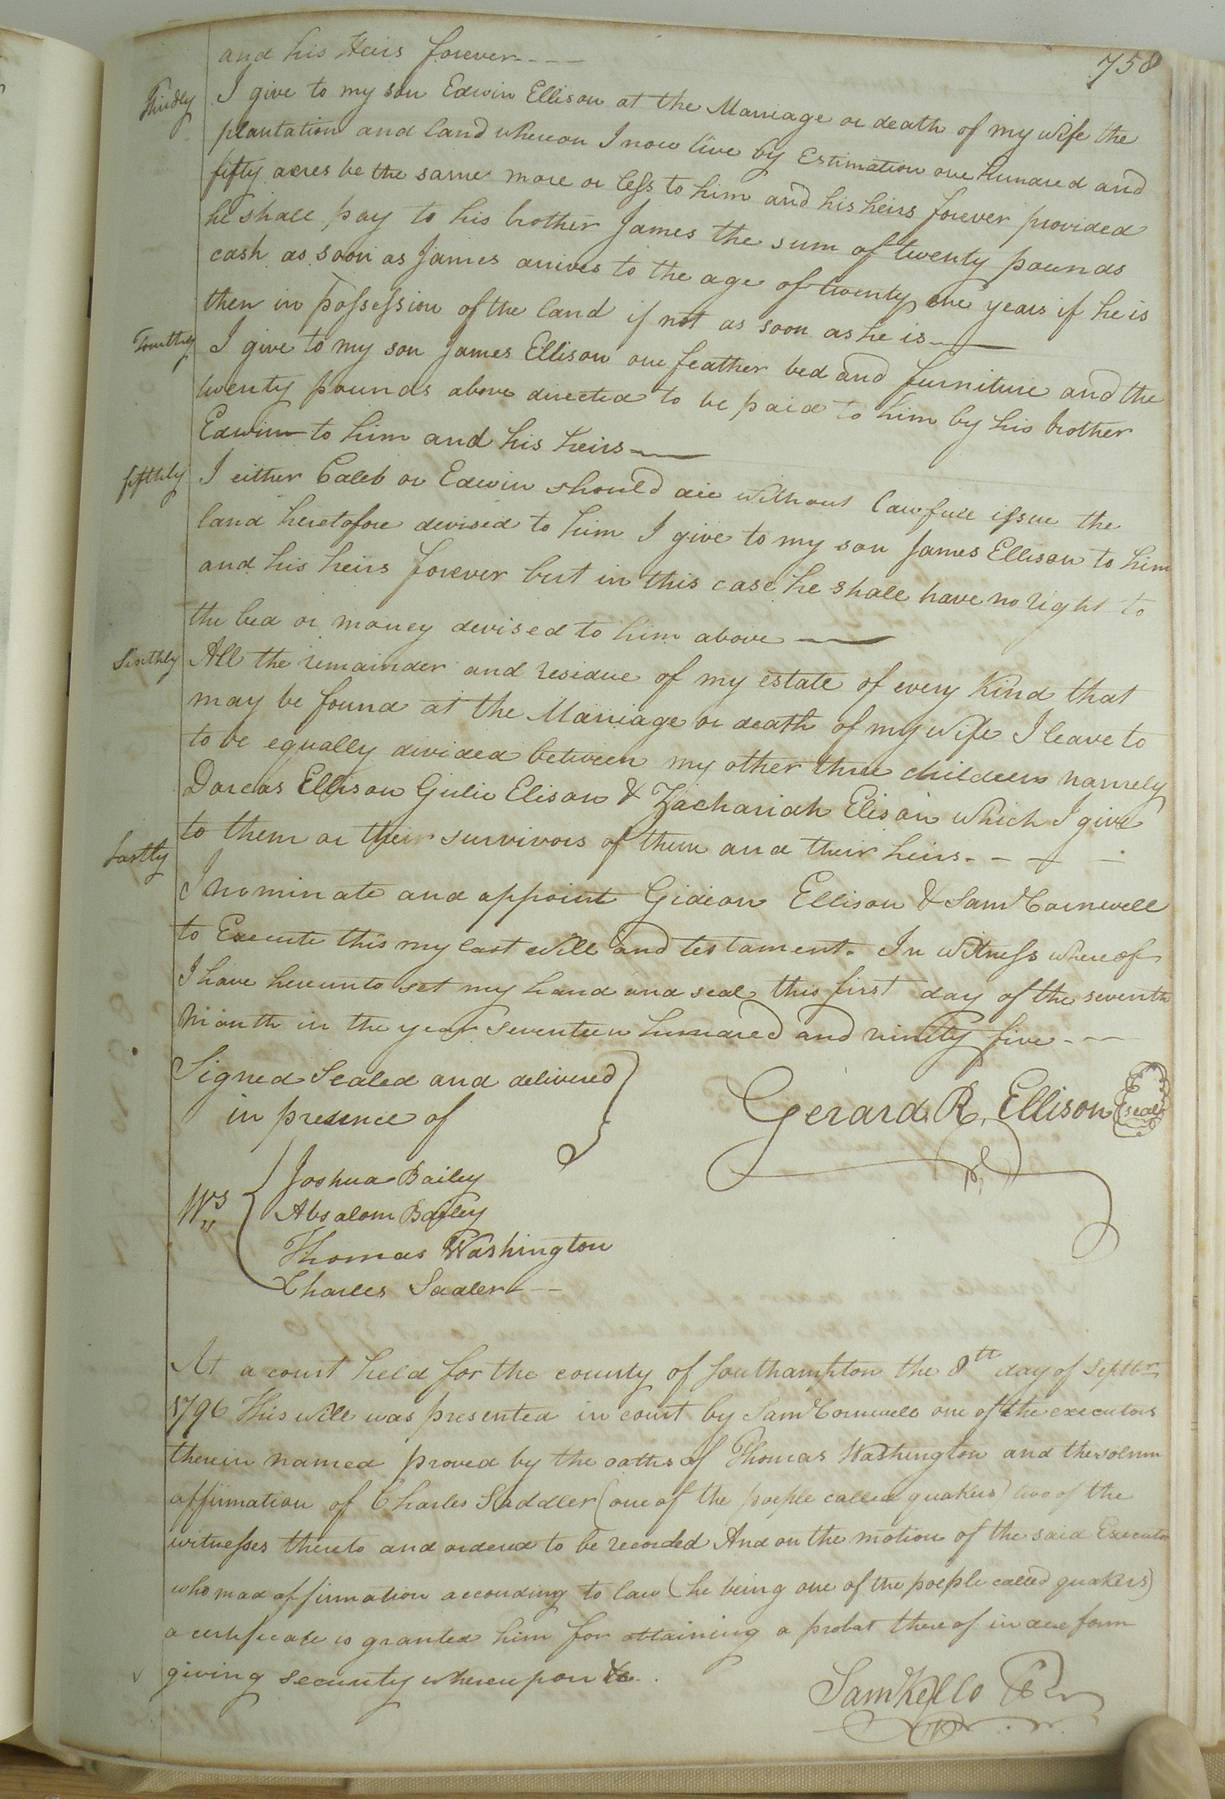 758
and his Heirs forever
Thirdly I give to my son Edwin Ellison at the Marriage or death of my wife the
plantation and land whereon I now live by Estimation one Hundred and
fifty acres be the same more or less to him and his heirs forever provided
he shall pay to his brother James the sum of twenty pounds
cash as soon as James arives to the age of twenty one years if he is
then in possession of the land if not as soon as he is
Fourthly I give to my son James Ellison one feather bed and furniture and the
twenty pounds above directed to be paid to him by his brother
Edwin to him and his heirs
fifthly I either Caleb or Edwin should die without lawfull issue the
land heretofore devised to him I give to my son James Ellison to him
and his heirs forever but in this case he shall have no right to
the bed or money devised to him above
Sixthly All the remainder and residue of my estate of every kind that
may be found at the Marriage or death of my wife I leave to
to be equally divided between my other three children namely
Dorcas Ellison Gulie Elison & Zachariah Elison which I give
to them or their survivors of them and their heirs
Lastly I nominate and appoint Gideon Ellison & Saml Cornwell
to Execute this my last will and testament. In witness whereof
I have hereunto set my hand and seal this first day of the seventh
month in the year seventeen hundred and ninety five
Signed Sealed and delivered
in presence of
Gerard R. Ellison seal
Wss Joshua Bailey
Absalom Bailey
Thomas Washington
Charles Sadler
At a court held for the county of Southampton the 8th day of Septbr
1796 This will was presented in court by Saml Cornwell one of the executors
therein named proved by the oaths of Thomas Washington and the solemn
affirmation of Charles Saddler (one of the poeple called quakers) two of the
witnesses thereto and ordered to be recorded And on the motion of the said Executor
who mad affirmation according to law (he being one of the poeple called quakers)
a certificate is granted him for obtaining a probat thereof in due form
giving security whereupon &c.
Saml Kello